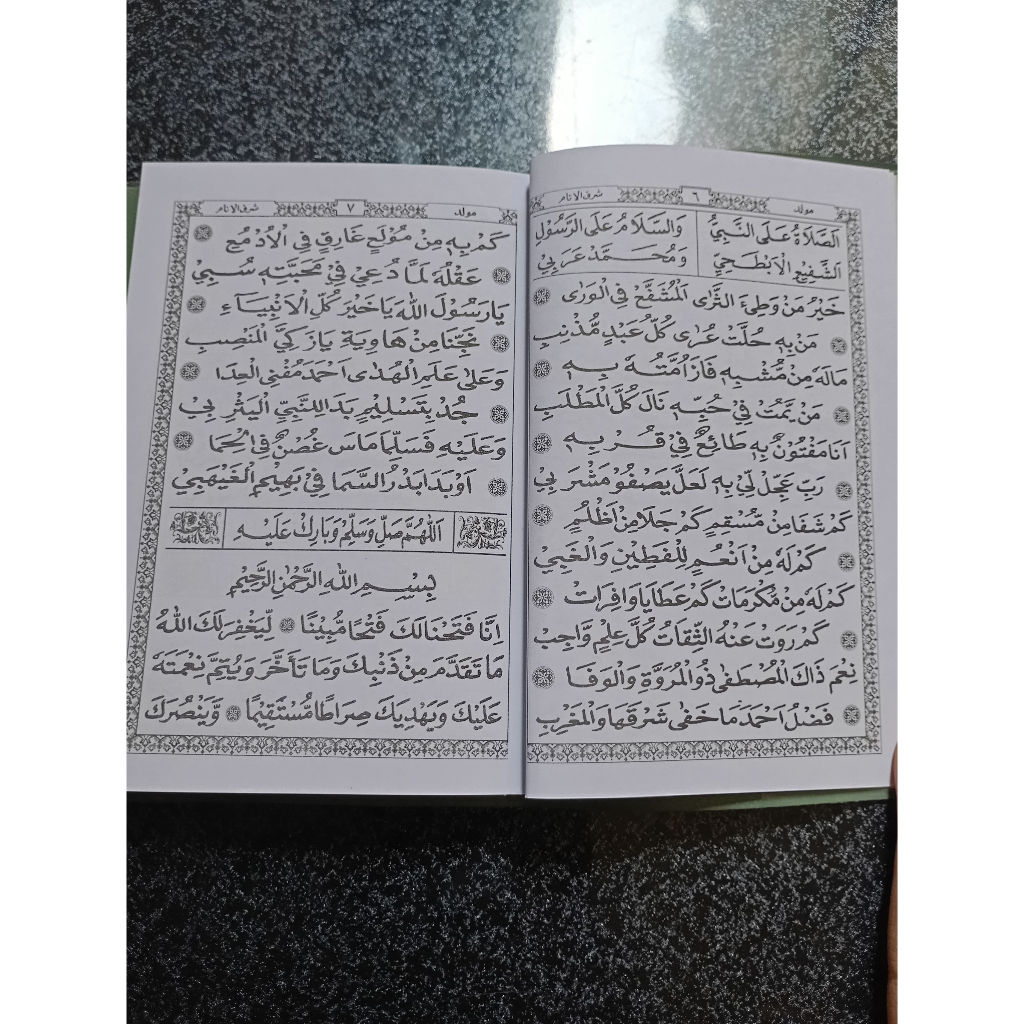 مولد ٦ شرف الانام
اَلصَّلَاةُ عَلَى النَّبِيِّ وَالسَّلَامُ عَلَى الرَّسُوْلِ
اَلشَّفِيْعِ الْاَبْطَحِيِّ وَمُحَمَّدْ عَرَبِيْ
خَيْرُ مَنْ وَطِئَ الثَّرٰى اَلْمُشَفَّعْ فِى الْوَرٰى
مَنْ بِهٖ حُلَّتْ عُرٰى كُلُّ عَبْدٍ مُّذْنِبِ
مَالَهٗ مِنْ مُّشْبِهٖ فَازَ اُمَّتُهٗ بِهٖ
مَنْ يَّمُتْ فِيْ حُبِّهٖ نَالَ كُلَّ الْمَطْلَبِ
اَنَا مَفْتُوْنٌ بِهٖ طَائِعٌ فِيْ قُرْبِهٖ
رَبِّ عَجِّلْ لِّيْ بِهٖ لَعَلَّ يَصْفُوْ مَشْرَبِيْ
كَمْ شَفَا مِنْ مُّسْقِمٍ كَمْ جَلَا مِنْ اَظْلُمٍ
كَمْ لَهٗ مِنْ اَنْعُمٍ لِلْفَطِيْنِ وَالْغَبِيْ
كَمْ لَهٗ مِنْ مَّكْرُمَاتْ كَمْ عَطَايَا وَافِرَاتْ
كَمْ رَوَتْ عَنْهُ الثِّقَاتْ كُلَّ عِلْمٍ وَّاجِبْ
نِعْمَ ذَاكَ الْمُصْطَفٰى ذُو الْمُرُوَّةِ وَالْوَفَا
فَضْلُ اَحْمَدَ مَا خَفٰى شَرْقَهَا وَالْمَغْرِبِ
مولد ٧ شرف الانام
كَمْ بِهٖ مِنْ مُوْلَعٍ غَارِقٍ فِي الْاَدْمُعِ
عَقْلُهٗ لَمَّا دُعِيْ فِيْ مَحَبَّتِهٖ سُبِيْ
يَارَسُوْلَ اللهِ يَاخَيْرَ كُلِّ الْاَنْبِيَاءِ
نَجِّنَا مِنْ هَاوِيَةْ يَازَكِيَّ الْمَنْصِبِ
وَعَلٰى عَلَمِ الْهُدٰى اَحْمَدَ مُفْنِي الْعِدَا
جُدْ بِتَسْلِيْمٍ بَدَا لِلنَّبِيِّ الْيَثْرِبِيْ
وَعَلَيْهِ فَسَلِّمَا مَاسَ غُصْنٌ فِي الْحِمَا
اَوْ بَدَا بَدْرُ السَّمَا فِيْ بَهِيْمِ الْغَيْهَبِيْ
اَللّٰهُمَّ صَلِّ وَسَلِّمْ وَبَارِكْ عَلَيْهِ
بِسْمِ اللهِ الرَّحْمٰنِ الرَّحِيْمِ
اِنَّا فَتَحْنَا لَكَ فَتْحًا مُّبِيْنًا لِّيَغْفِرَ لَكَ اللهُ
مَا تَقَدَّمَ مِنْ ذَنْبِكَ وَمَا تَأَخَّرَ وَيُتِمَّ نِعْمَتَهٗ
عَلَيْكَ وَيَهْدِيَكَ صِرَاطًا مُّسْتَقِيْمًا وَّيَنْصُرَكَ